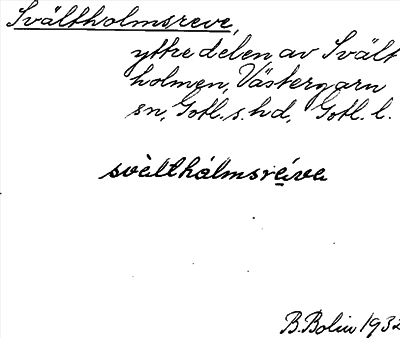 Svältholmsreve,
yttre delen av Svält
holmen, Västergarn
sn, Gotl. s. hd, Gotl. l.
svàlthálmsrai̯va
B. Bolin 1932